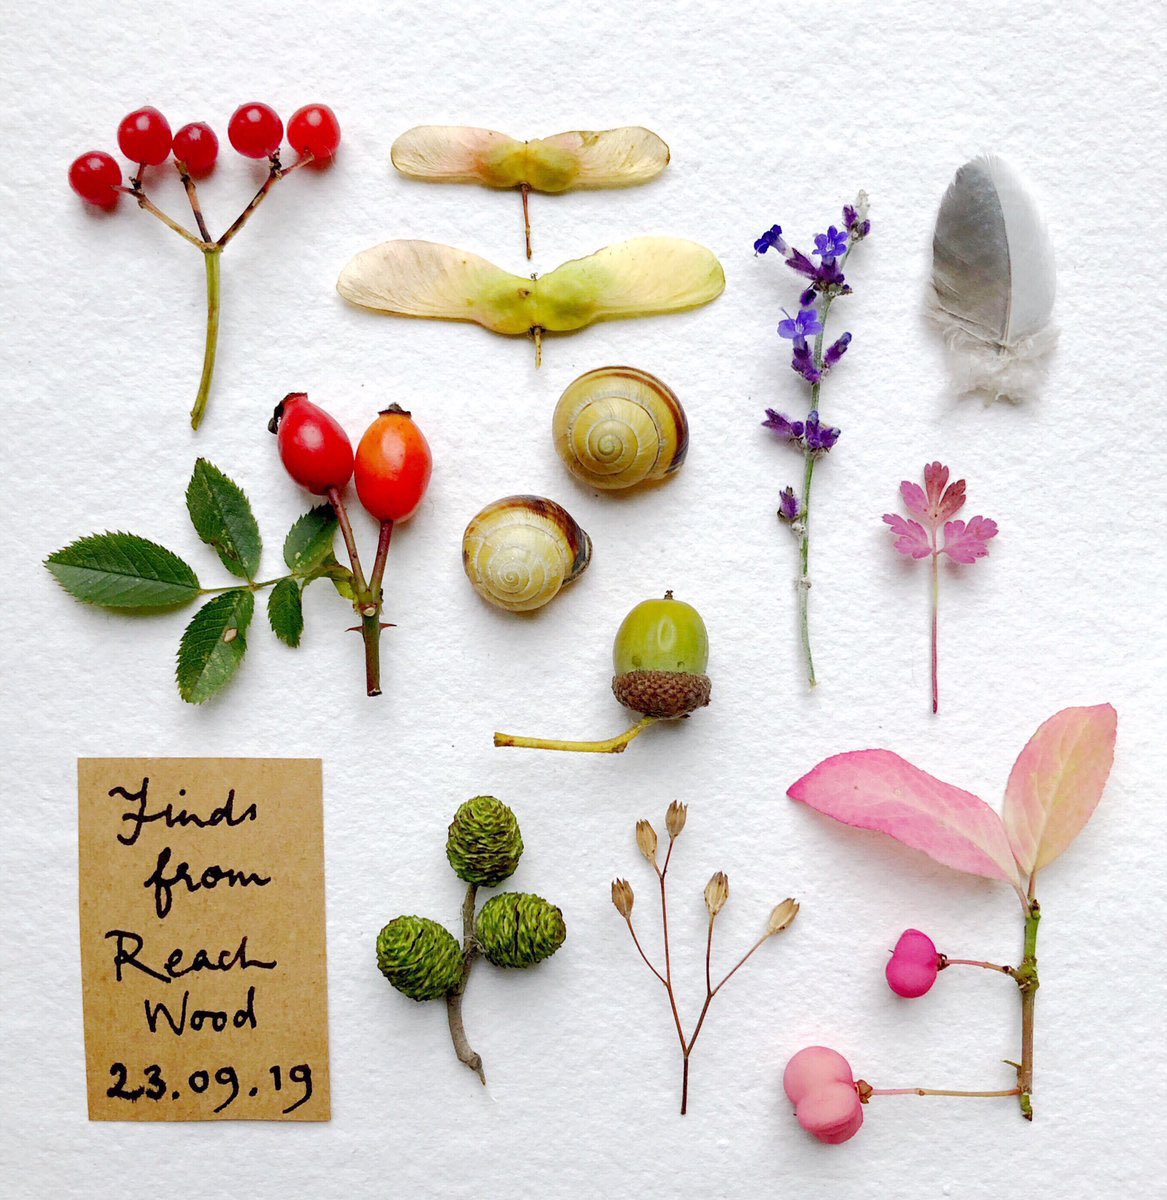 Finds
from
Reach
Wood
23.09.19